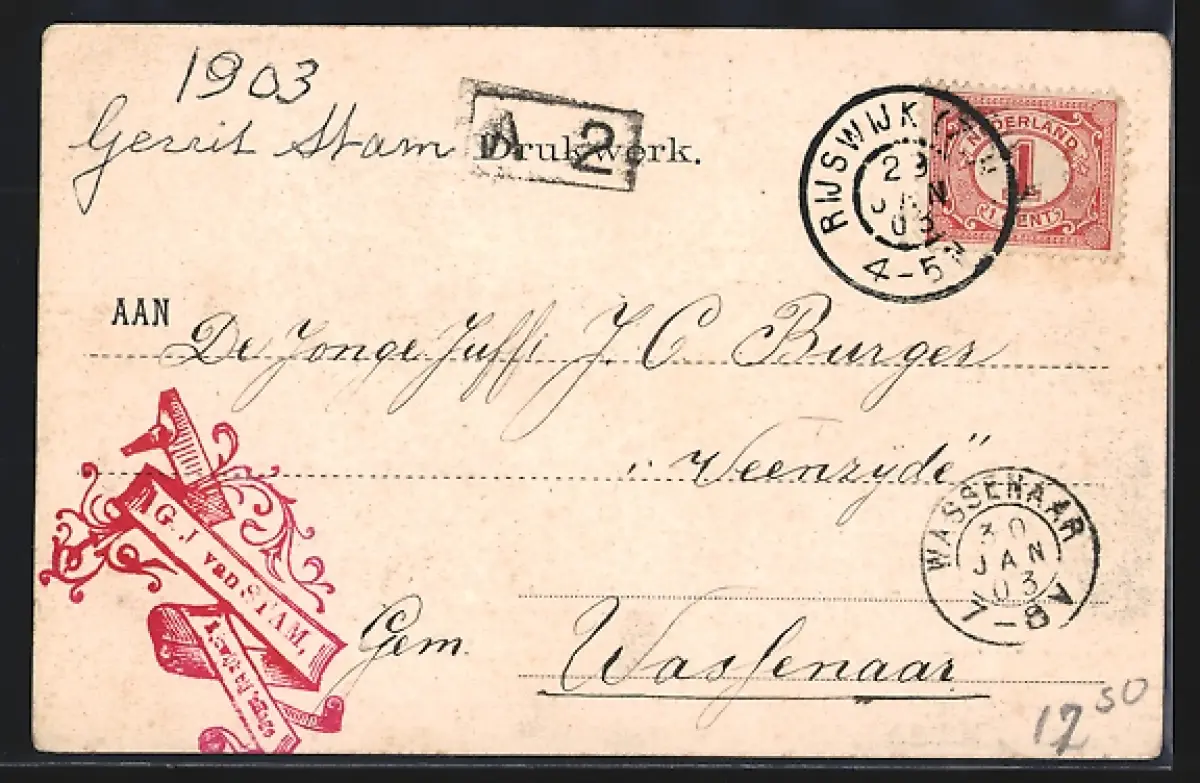 1903
Gerrit Stam
A 2
Drukwerk.
RIJSWIJK (Z.H.)
JAN
03
4-5N
NEDERLAND
1
1 CENT
AAN De Jonge Juff: J. C Burger
"Veenzyde"
G. J. van STAM,
WASSENAAR
30
JAN
03
7-8 V
Gem. Wassenaar
12 50